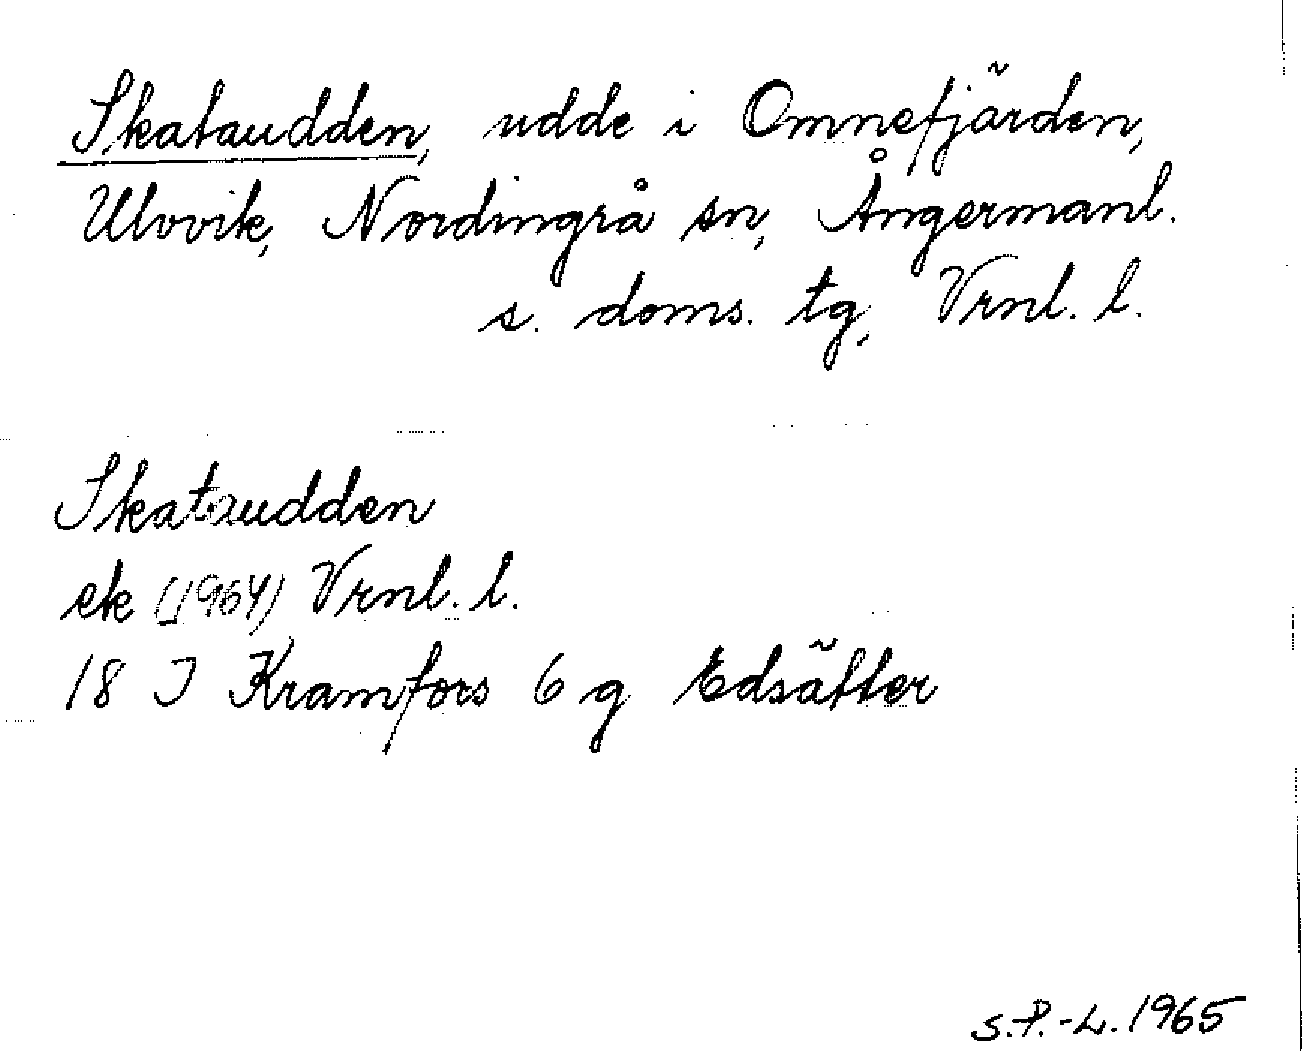 Skataudden, udde i Omnefjärden,
Ulvvik, Nordingrå sn, Ångermanl.
s. doms. tg, Vrnl. l.
Skataudden
ek (1964) Vrnl. l.
18 I Kramfors 6 g Edsätter
S.P.-L. 1965